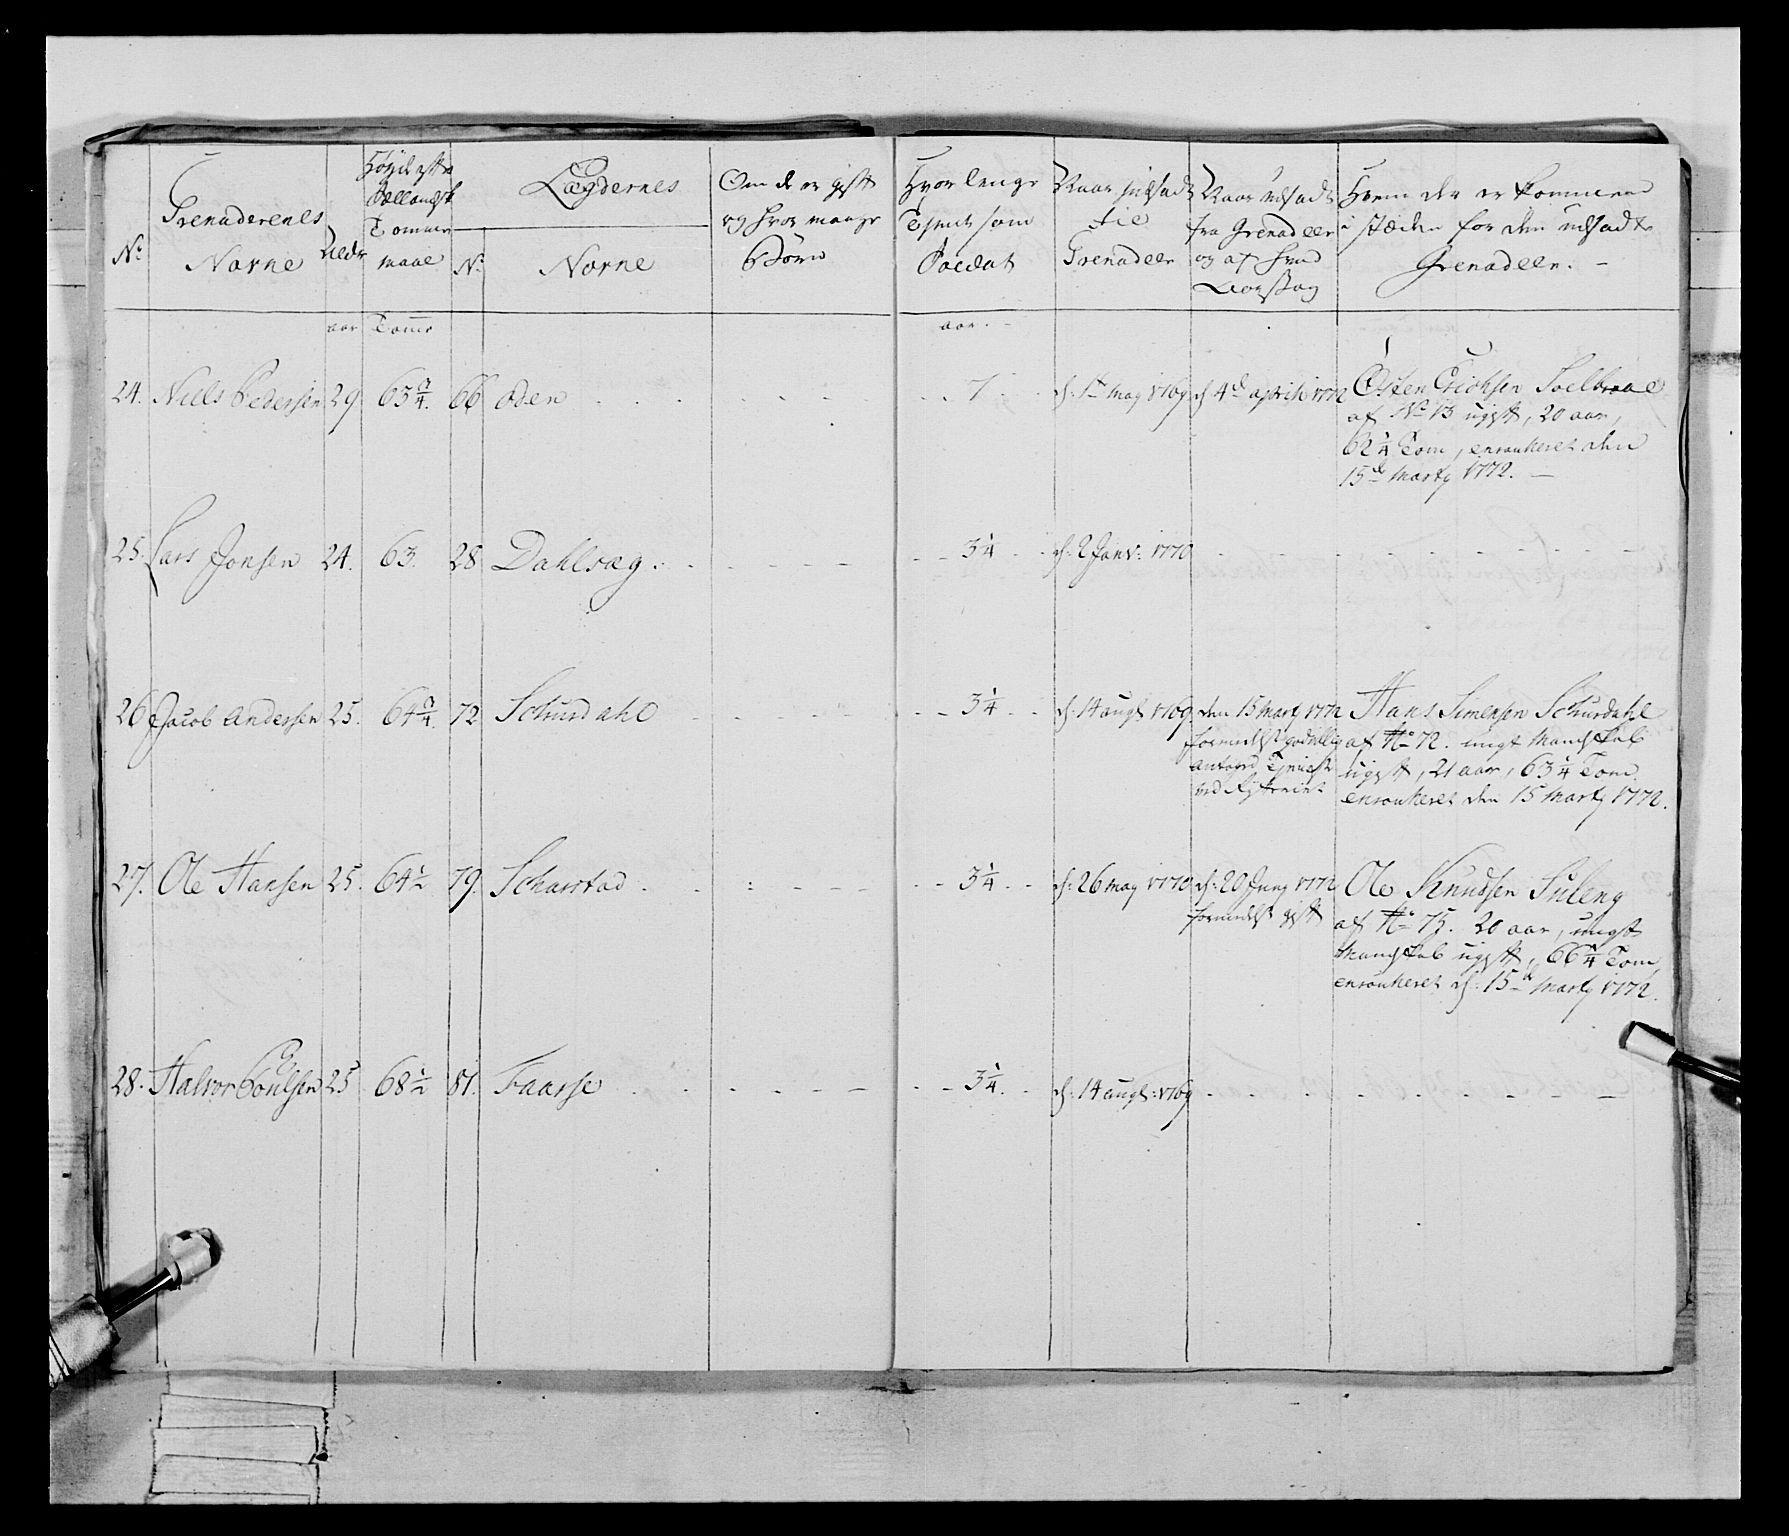 No
Grenaderenes
Nafne
Alder
Høyde efter
Siællandsk
Tomme
maal
Lægdernes
No
Nafne
Om de er gift
og hvor mange
Børn
Hvor længe
Tient som
Soldat
Naar indsadt
til
Grenadeer
Naar udsadt
fra Grenadeer
og af hvad
Aarsag
Hvem der er kommen
i stæden for den udsadte
Grenadeer. –
aar Tomr aar. –
24. Niels Pedersen 29 63 3/4. 66 Oden 7 d: 1te may 1769 d 4de april 1772 Osten Erichsen Soelbraae
af No 13 ugift, 20 aar,
62 1/4 Tom, enrouleret den
15de Martÿ 1772. —
25. Lars Jonsen 24. 63. 28 Dahlsæg 3 1/4 d: 2 Janv: 1770
26 Jacob Andersen 25. 64 3/4. 72 Schurdahl 3 1/4 d: 14 augt 1769 den 15 Martÿ 1772 Hans Simensen Schurdahl
formedelst godvillig af No 72. ungt Mandskab
antaged Tieniste ugift, 21 aar, 63 1/4 Tom
ved enrouleret den 15 Martÿ 1772.
27. Ole Hansen 25. 64 1/2 79. Scharstad 3 1/4 d: 26 may 1770 d: 20 Junÿ 1772 Ole Knudsen Suleng
formedelst gift af No 75. 20 aar, ungt
Mandskab ugift, 66 1/4 Tom,
enrouleret d: 15de Martÿ 1772.
28. Halvor Poulsen 25 68 1/2 81. Faarse 3 1/4. d: 14 augt: 1769